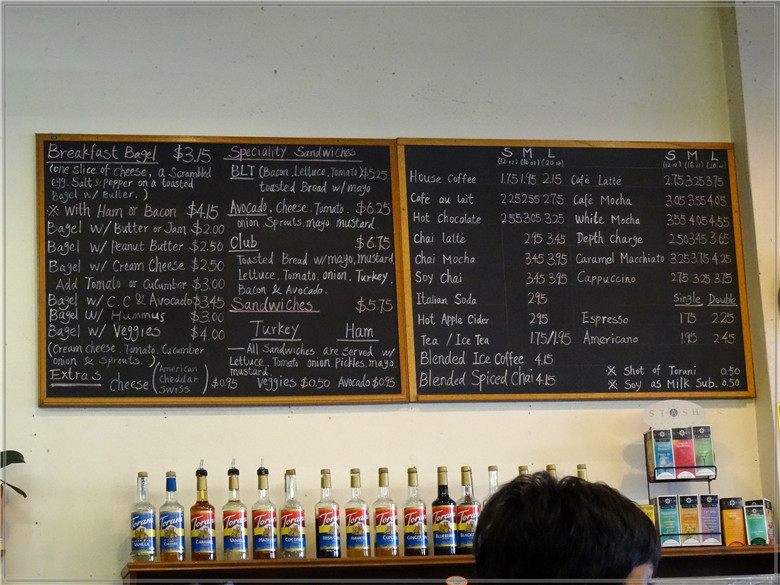 Breakfast Bagel $3.15
(one slice of cheese, a scrambled
egg. Salt & pepper on a toasted
Bagel w/ Butter.)
※ With Ham or Bacon $4.15
Bagel w/ Butter or Jam $2.00
Bagel w/ Peanut Butter $2.50
Bagel w/ Cream Cheese $2.50
Add Tomato or Cucumber $3.00
Bagel w/ C.C & Avocado $3.45
Bagel w/ Hummus $3.00
Bagel w/ Veggies $4.00
(Cream cheese. Tomato, Cucumber
onion & Sprouts)
Extras
Cheese (American Cheddar Swiss) $0.95
Speciality Sandwiches
BLT (Bacon, Lettuce, Tomato) $5.25
toasted Bread w/ mayo
Avocado, Cheese, Tomato. $6.25
onion, Sprouts, mayo, mustard
Club $6.75
Toasted Bread w/ mayo, mustard
Lettuce, Tomato, onion, Turkey,
Bacon & Avocado.
Sandwiches $5.75
Turkey Ham
— All Sandwiches are served w/
Lettuce, Tomato onion, pickles, mayo,
mustard
Veggies $0.50 Avocado $0.95
S M L
(12 oz) (16 oz) (20 oz)
House Coffee 1.75 1.95 2.15
Café au lait 2.25 2.55 2.75
Hot Chocolate 2.55 3.05 3.25
chai latte 2.95 3.45
Chai Mocha 3.45 3.95
Soy chai 3.45 3.95
Italian Soda 2.95
Hot Apple Cider 2.95
Tea / Ice Tea 1.75/1.95
Blended Ice Coffee 4.15
Blended Spiced Chai 4.15
S M L
(12 oz) (16 oz) (20 oz)
Café Latté 2.75 3.25 3.75
Café Mocha 3.05 3.55 4.05
White Mocha 3.55 4.05 4.55
Depth charge 2.50 3.45 3.65
Caramel Macchiato 3.25 3.75 4.25
Cappuccino 2.75 3.25 3.75
Single Double
Espresso 1.75 2.25
Americano 1.95 2.45
※ Shot of Torani 0.50
※ Soy as Milk Sub. 0.50
STASH
Torani
Torani
Torani
Torani
Torani
Torani
Torani
Torani
Torani
Torani
Torani
Torani